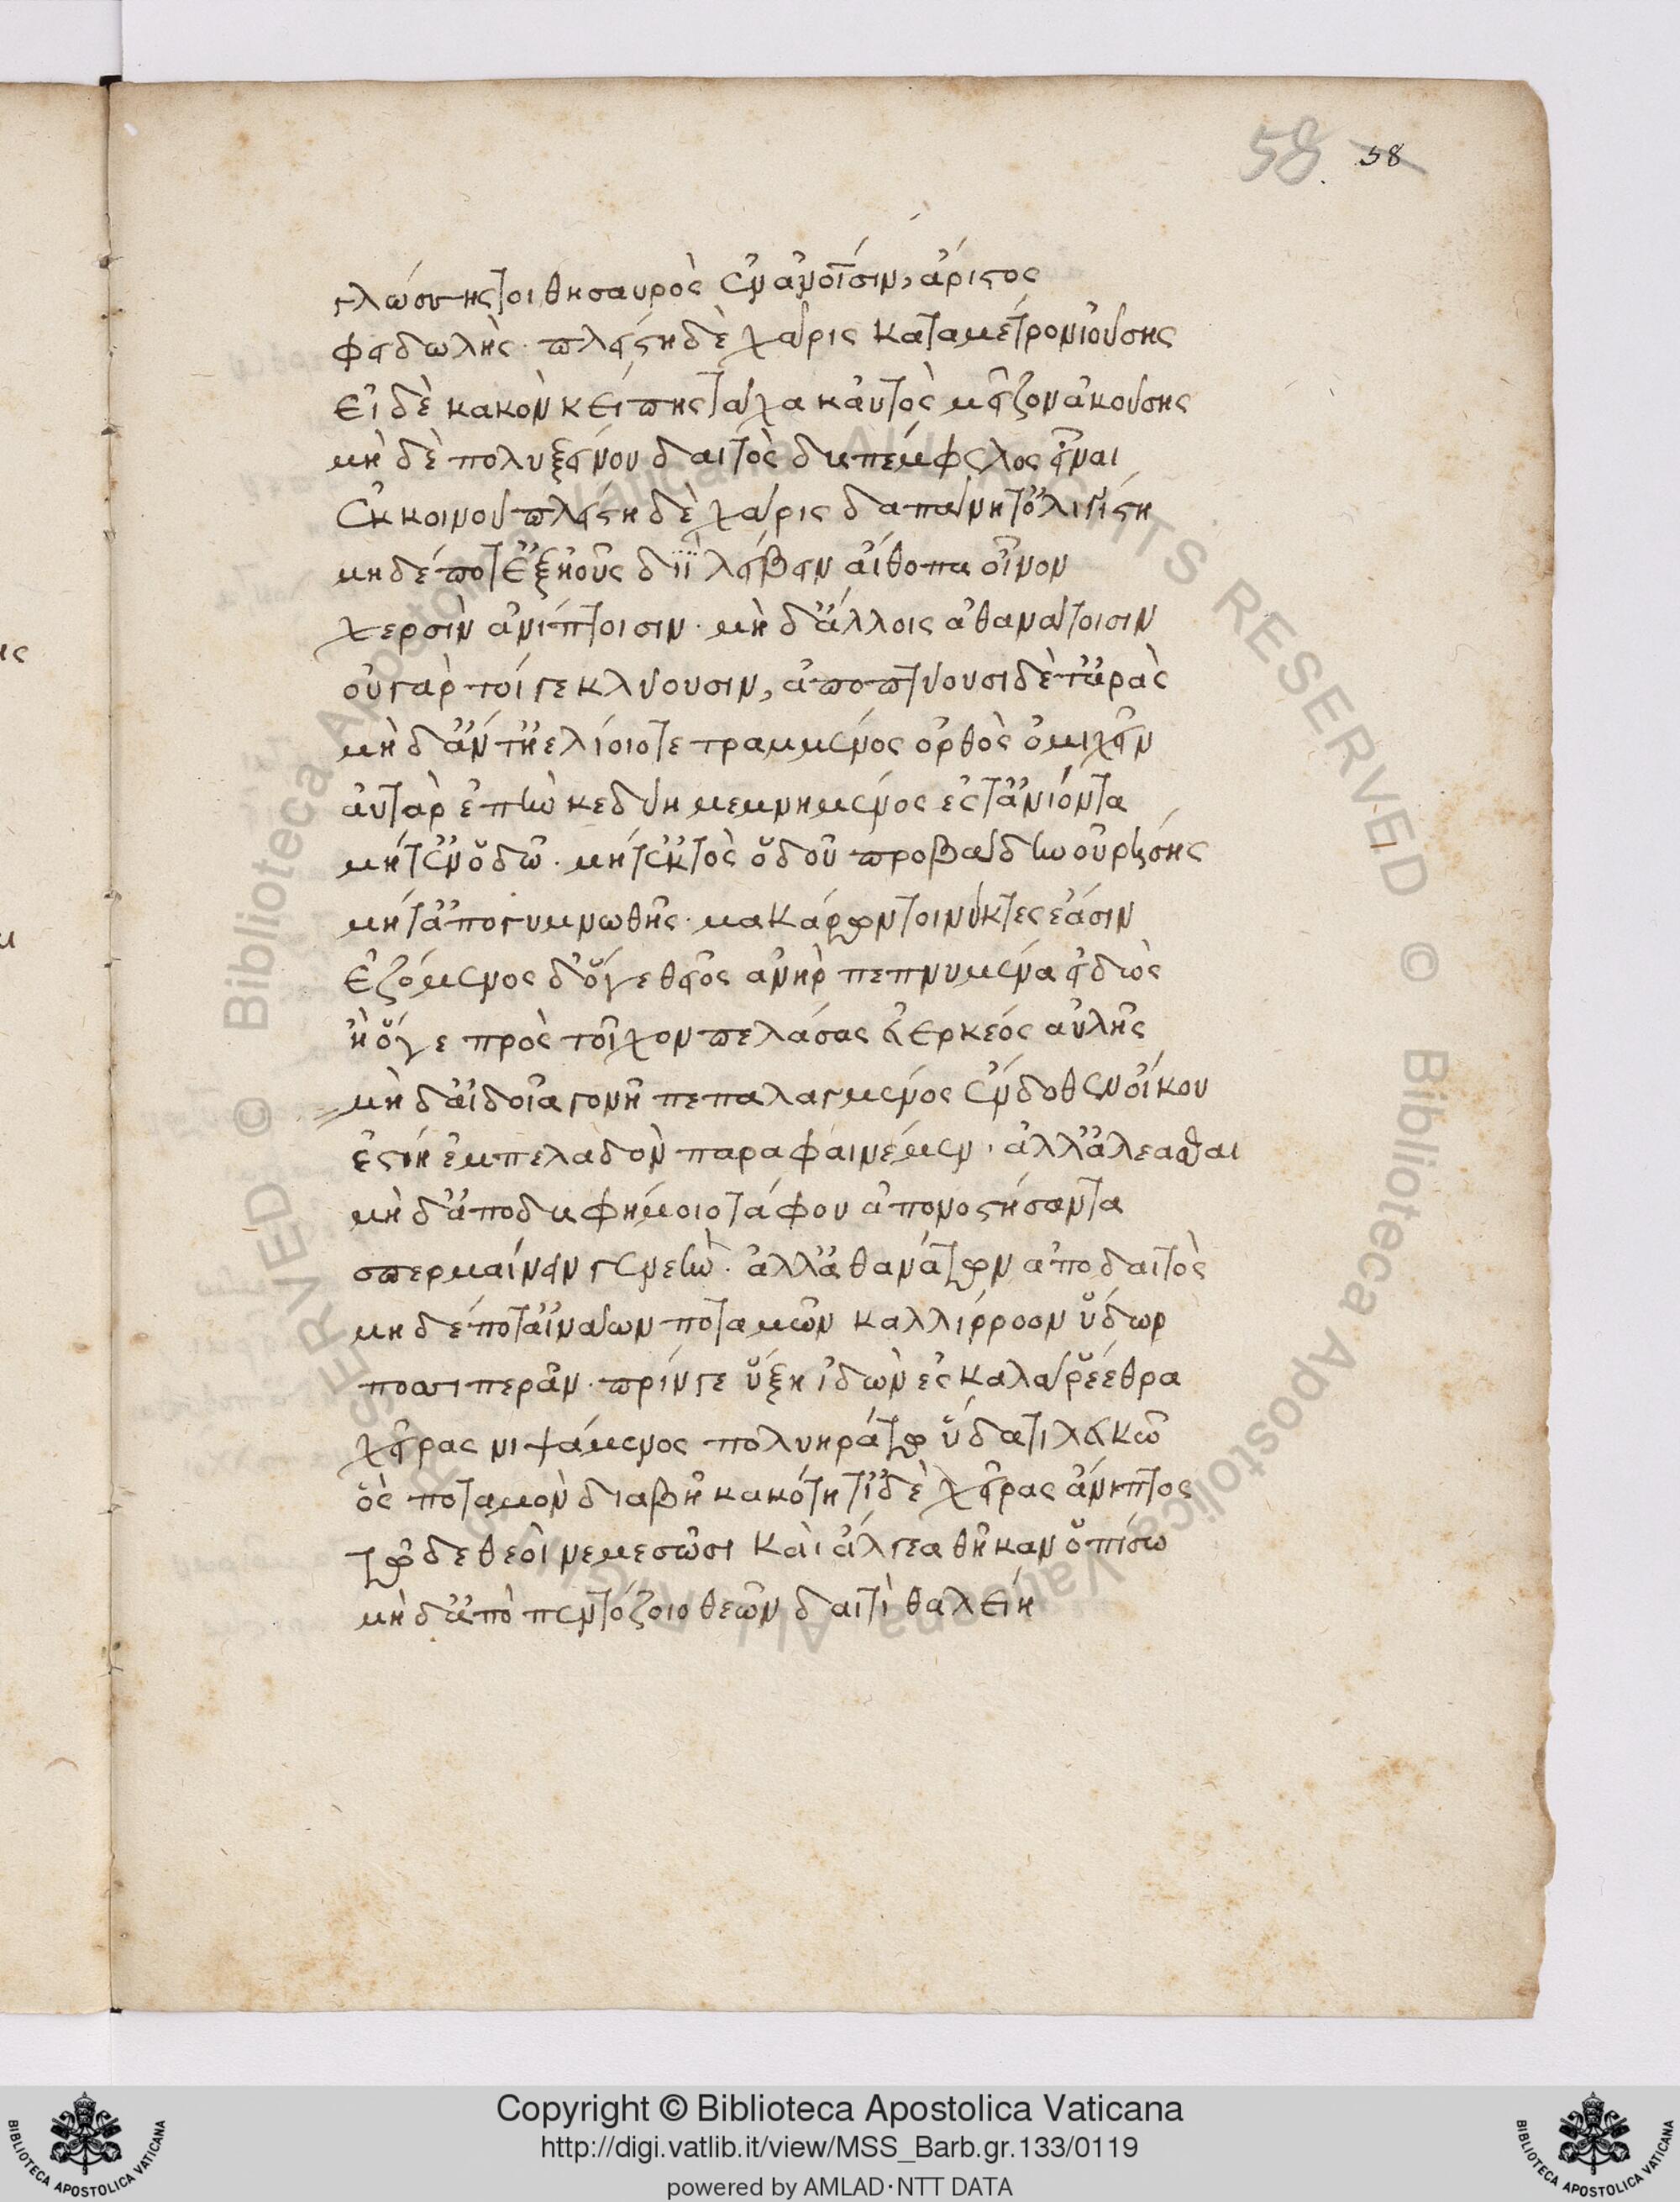 58. 58
γλώσσης τοι θησαυρὸς ἐν ἀνοῖσιν, ἄριστος
φειδωλῆς· πλείστη δὲ χάρις κατὰ μέτρον ἰούσης
εἰ δὲ κακὸν κ' εἴπης τάχα κ' αὐτὸς μεῖζον ἀκούσης
μὴ δὲ πολυξείνου δαιτὸς δυσπέμφελος εἶναι
ἐκ κοινοῦ πλείστη δὲ χάρις δαπάνη τ' ὀλιγίστη
μηδέ ποτ' ἐξ ἠοῦς διῒ λείβειν αἴθοπα οἶνον
χερσὶν ἀνίπτοισιν· μὴ δ' ἄλλοις ἀθανάτοισιν
οὐ γὰρ τοί γε κλύουσιν, ἀποπτύουσι δέ τ' ἀρὰς
μὴ δ' ἄντ' ἠελίοιο τετραμμένος ὀρθὸς ὀμιχεῖν
αὐτὰρ ἐπὴν κε δύη μεμνημένος ἔς τ' ἀνιόντα
μήτ' ἐν ὁδῶ· μήτ' ἐκτὸς ὁδοῦ προβάδην οὐρήσης
μήτ' ἀπογυμνωθῆς· μακάρων τοι νύκτες ἔασιν
ἑζόμενος δ' ὅγε θεῖος ἀνὴρ πεπνυμένα εἰδὼς
ἢ ὅγε πρὸς τοῖχον πελάσας εὐερκέος αὐλῆς
μὴ δ' αἰδοῖα γονῆ πεπαλαγμένος ἔνδοθεν οἴκου
ἑστίη ἐμπελαδὸν παραφαινέμεν· ἀλλ' ἀλέασθαι
μὴ δ' ἀπὸ δυσφήμοιο τάφου ἀπονοστήσαντα
σπερμαίνειν γενεὴν· ἀλλ' ἀθανάτων ἀπὸ δαιτὸς
μηδέ ποτ' ἀϊνάων ποταμῶν καλλίρροον ὕδωρ
ποσσὶ περᾶν· πρίν γε ὔξη ἰδὼν ἐς καλὰ ῥέεθρα
χεῖρας νιψάμενος πολυηράτω ὕδατι λευκῶ
ὃς ποταμὸν διαβῆ κακότητι δὲ χεῖρας ἄνιπτος
τῷ δε θεοὶ νεμεσῶσι καὶ ἄλγεα θῆκαν ὀπίσω
μὴ δ' ἀπὸ πεντόζοιο θεῶν δαιτὶ θαλείη
Copyright © Biblioteca Apostolica Vaticana
http://digi.vatlib.it/view/MSS_Barb.gr.133/0119
powered by AMLAD·NTT DATA